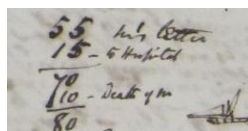 55 his letter
15 - to Hospital
70
10 - Death of m
80